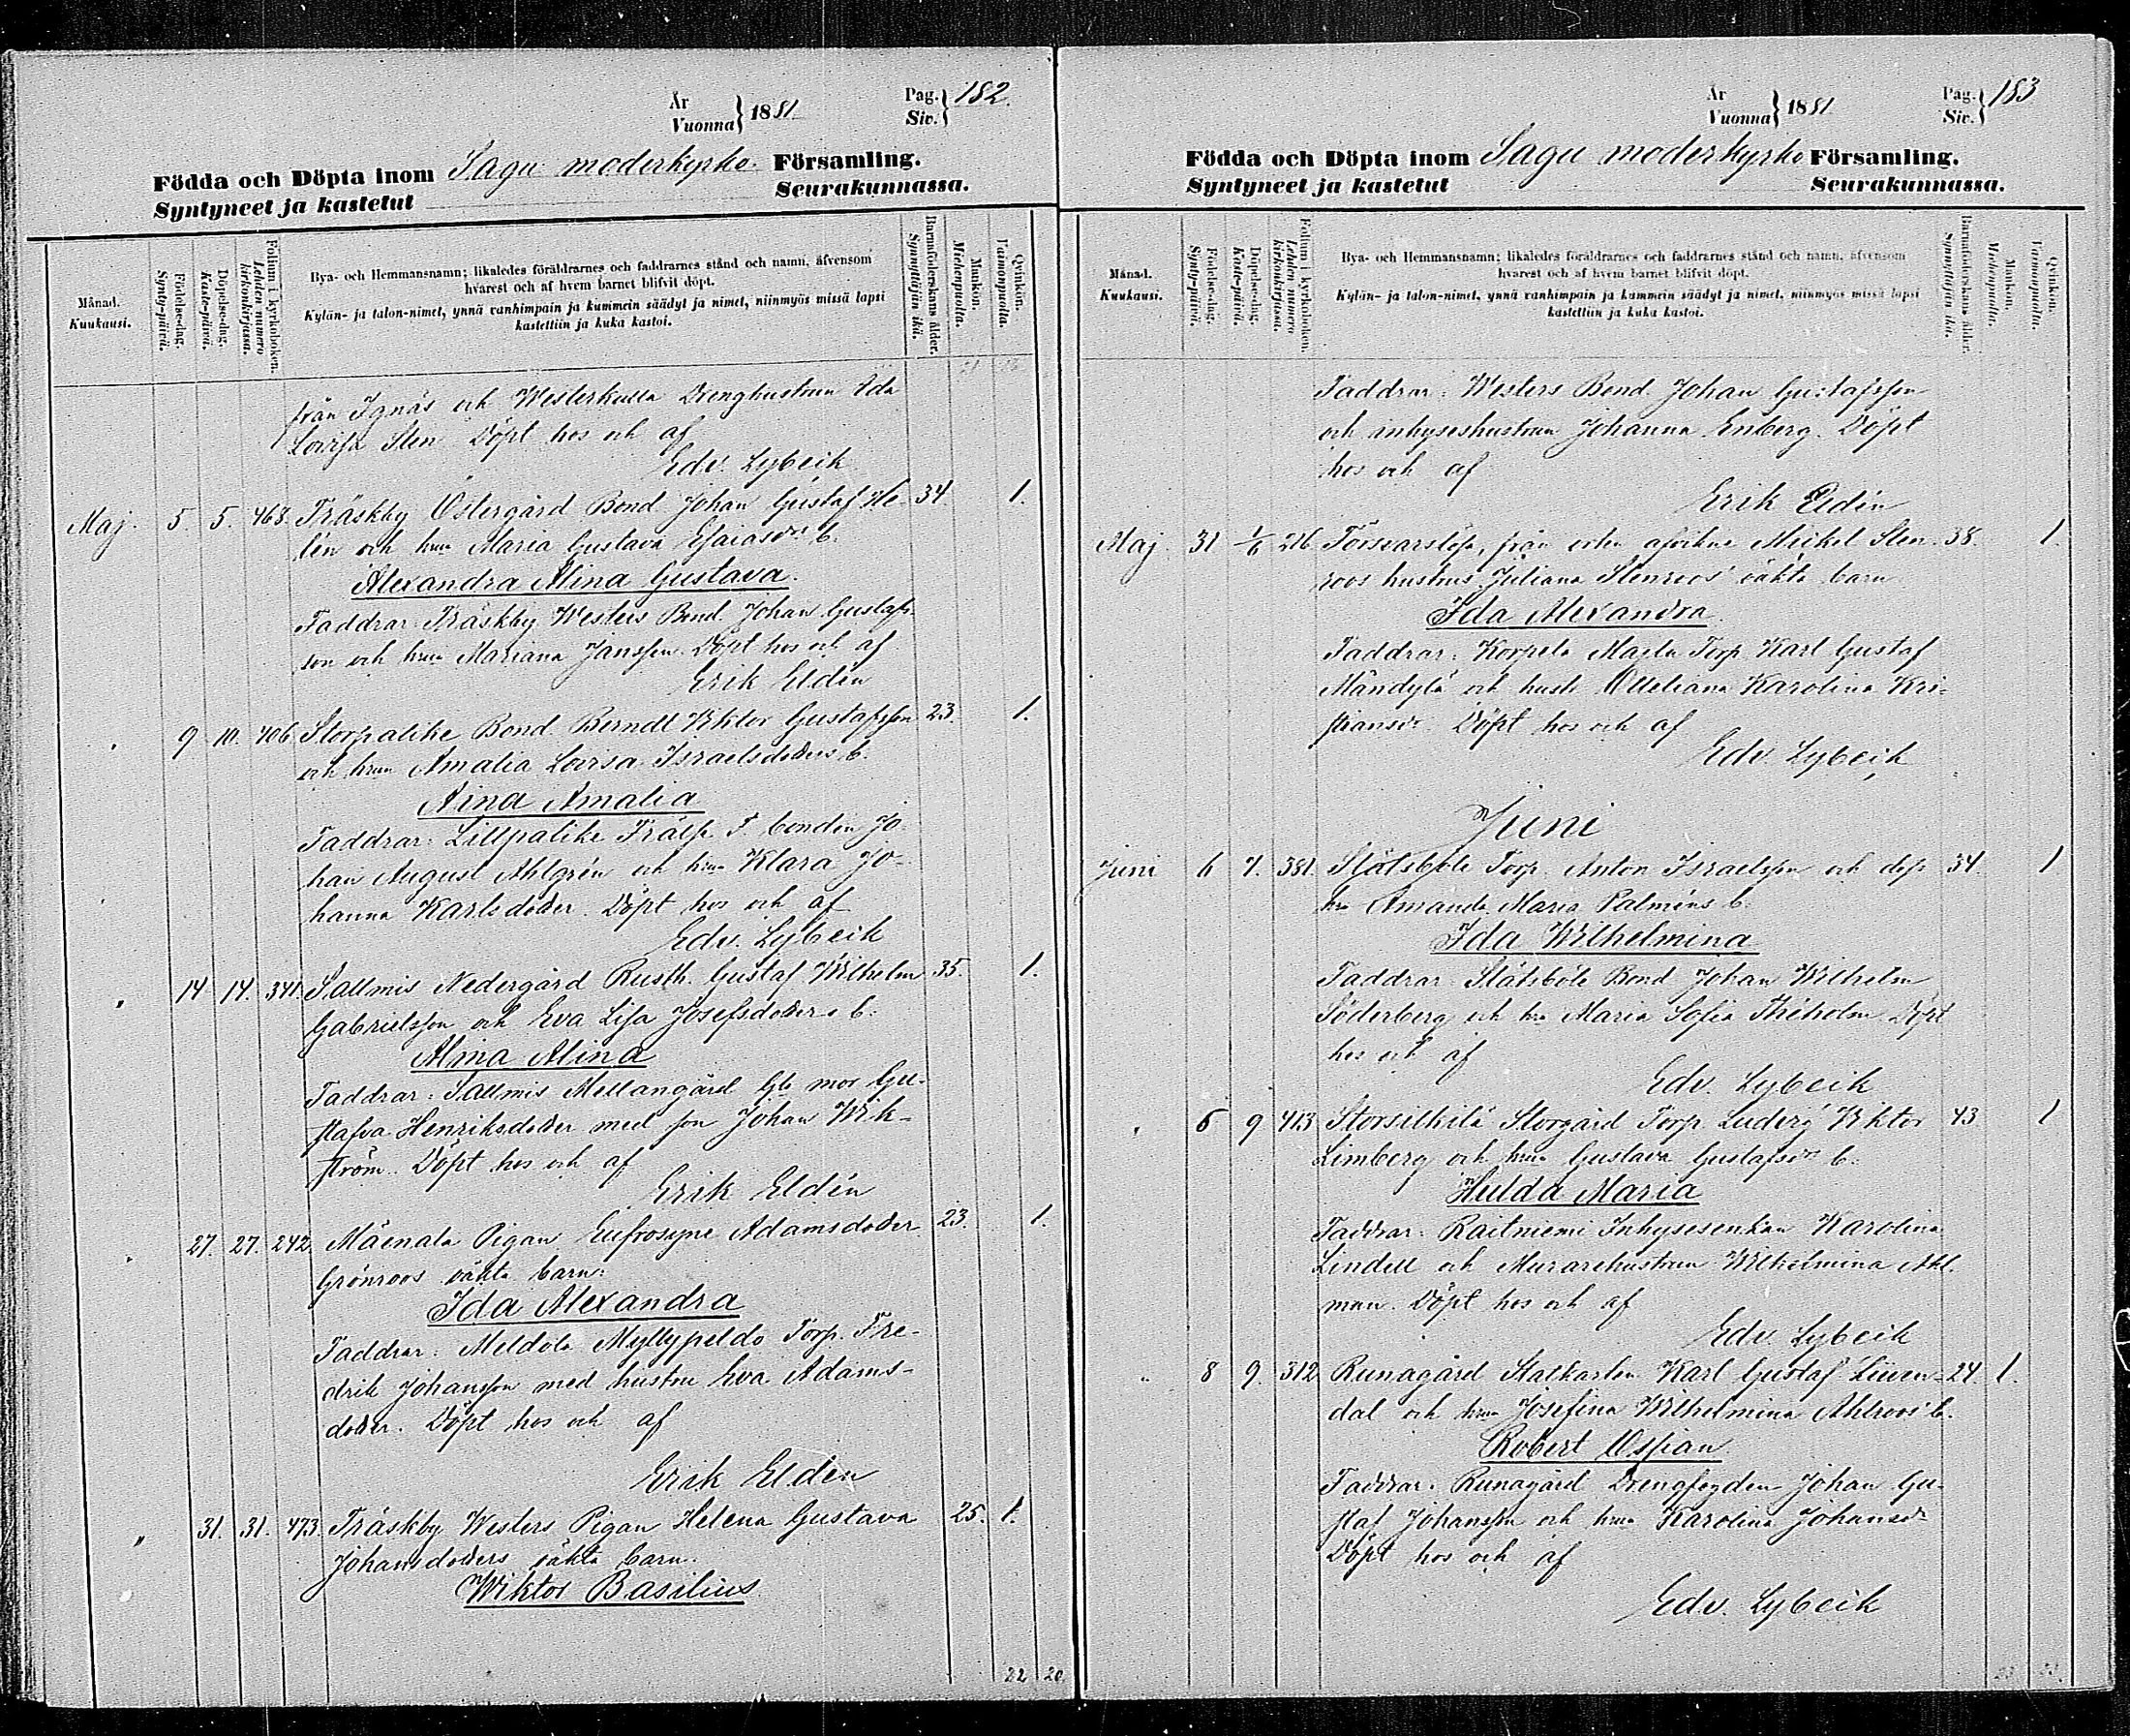 År
Vuonna } 1881.
Pag.
Siv. } 182.
Födda och Döpta inom Sagu moderkyrko Församling.
Syntyneet ja kastetut Seurakunnassa.
Månad.
Kuukausi.
Födelse-dag.
Synty-päivä.
Döpelse-dag.
Kaste-päivä.
Folium i kyrkoboken.
Lehden numero kirkonkirjassa.
Bya- och Hemmansnamn; likaledes föräldrarnes och faddrarnes stånd och namn, äfvensom
hvarest och af hvem barnet blifvit döpt.
Kylän- ja talon-nimet, ynnä vanhimpain ja kummein säädyt ja nimet, niinmyös missä lapsi
kastettiin ja kuka kastoi.
Barnaföderskans ålder.
Synnyttäjän ikä.
Mankön.
Miehenpuolta.
Qvinkön.
Vaimonpuolta.
från Ignäs och Westerkulla Drenghustrun Eda
Lovisa Sten Döpt hos och af
Edv. Lybeck
Maj. 5. 5. 463. Träskby Östergård Bond. Johan Gustaf He- 34. 1.
lén och hrun Maria Gustava Esaiasdrs b.
Alexandra Alina Gustava.
Faddrar Träskby Westers Bond. Johan Gustafs-
son och hrun Mariana Jansson. Döpt hos och af
Erik Eldén
" 9 10. 406 Storpalike Bond. Berndt Viktor Gustafsson 23. 1.
och hrun Amalia Lovisa Israelsdoders b.
Aina Amalia
Faddrar: Lillpalike Frälse F. bonden Jo-
han August Ahlgrén och hrun Klara Jo-
hanna Karlsdoder. Döpt hos och af
Edv. Lybeck
" 14 14. 341. Sallmis Nedergård Rusth. Gustaf Wilhelm 35. 1.
Gabrielsson och Eva Lisa Josefsdoders b.
Alma Alina
Faddrar: Sallmis Mellangård Gb. mor Gu-
stafva Henriksdoder med son Johan Wik-
ström. Döpt hos och af
Erik Eldén
" 27. 27. 242. Mäenala Pigan Eufrosyne Adamsdoder 23. 1.
Grönroos oäkta barn:
Ida Alexandra
Faddrar: Meldola Myllypeldo Torp. Fre-
drik Johansson med hustru Eva Adams-
doder. Döpt hos och af
Erik Elden
" 31. 31. 473. Träskby Westers Pigan Helena Gustava 25. 1.
Johansdoders oäkta barn.
Wiktor Basilius
22 20
År
Vuonna } 1881.
Pag.
Siv. } 183
Födda och Döpta inom Sagu moderkyrko Församling.
Syntyneet ja kastetut Seurakunnassa.
Månad.
Kuukausi.
Födelse-dag.
Synty-päivä.
Döpelse-dag.
Kaste-päivä.
Folium i kyrkoboken.
Lehden numero kirkonkirjassa.
Bya- och Hemmansnamn; likaledes föräldrarnes och faddrarnes stånd och namn, äfvensom
hvarest och af hvem barnet blifvit döpt.
Kylän- ja talon-nimet, ynnä vanhimpain ja kummein säädyt ja nimet, niinmyös missä lapsi
kastettiin ja kuka kastoi.
Barnaföderskans ålder.
Synnyttäjän ikä.
Mankön.
Miehenpuolta.
Qvinkön.
Vaimonpuolta.
Faddrar: Westers Bond. Johan Gustafsson
och inhyseshustrun Johanna Enberg. Döpt
hos och af
Erik Eldén
Maj. 31 1/6 216 Försvarslöse, från orten afvikne Mickel Sten- 38. 1
roos hustrus Juliana Stenroos' oäkta barn
Ida Alexandra
Faddrar: Korpela Torp. Karl Gustaf
Mändylä och hustr. Karolina Kri-
stiansdr. Döpt hos och af
Edv. Lybeck
Juni
Juni 6 7. 381. Slätsböle Torp. Anton Israelsson och dess 34. 1
hru Amanda Maria Palméns b.
Ida Wilhelmina
Faddrar: Slätsböle Bond Johan Wilhelm
Söderberg och hru Maria Sofia Döpt
hos och af
Edv. Lybeck
" 6 9 413 Storsilkilä Storgård Torp. Ludvig Viktor 43 1
Limberg och hrun Gustava Gustafsdrs b.
Hulda Maria
Faddrar: Raitniemi Inhysesenkan Karolina
Lindell och Murarehustrun Wilhelmina Ahl-
man. Döpt hos och af
Edv. Lybeck
" 8 9. 312 Runagård Statkarlen Karl Gustaf Liwen- 24. 1.
dal och hrun Josefina Wilhelmina Ahlroos' b.
Robert Ossian
Faddrar: Runagård Drengfogden Johan Gu-
staf Johansson och hrun Karolina Johansdr
Döpt hos och af
Edv. Lybeck